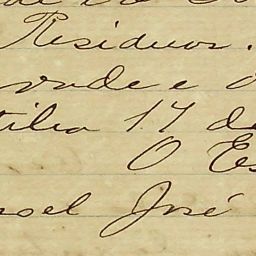 de
Residuos.
vude e O
tilia 17 de
O Es
noel José